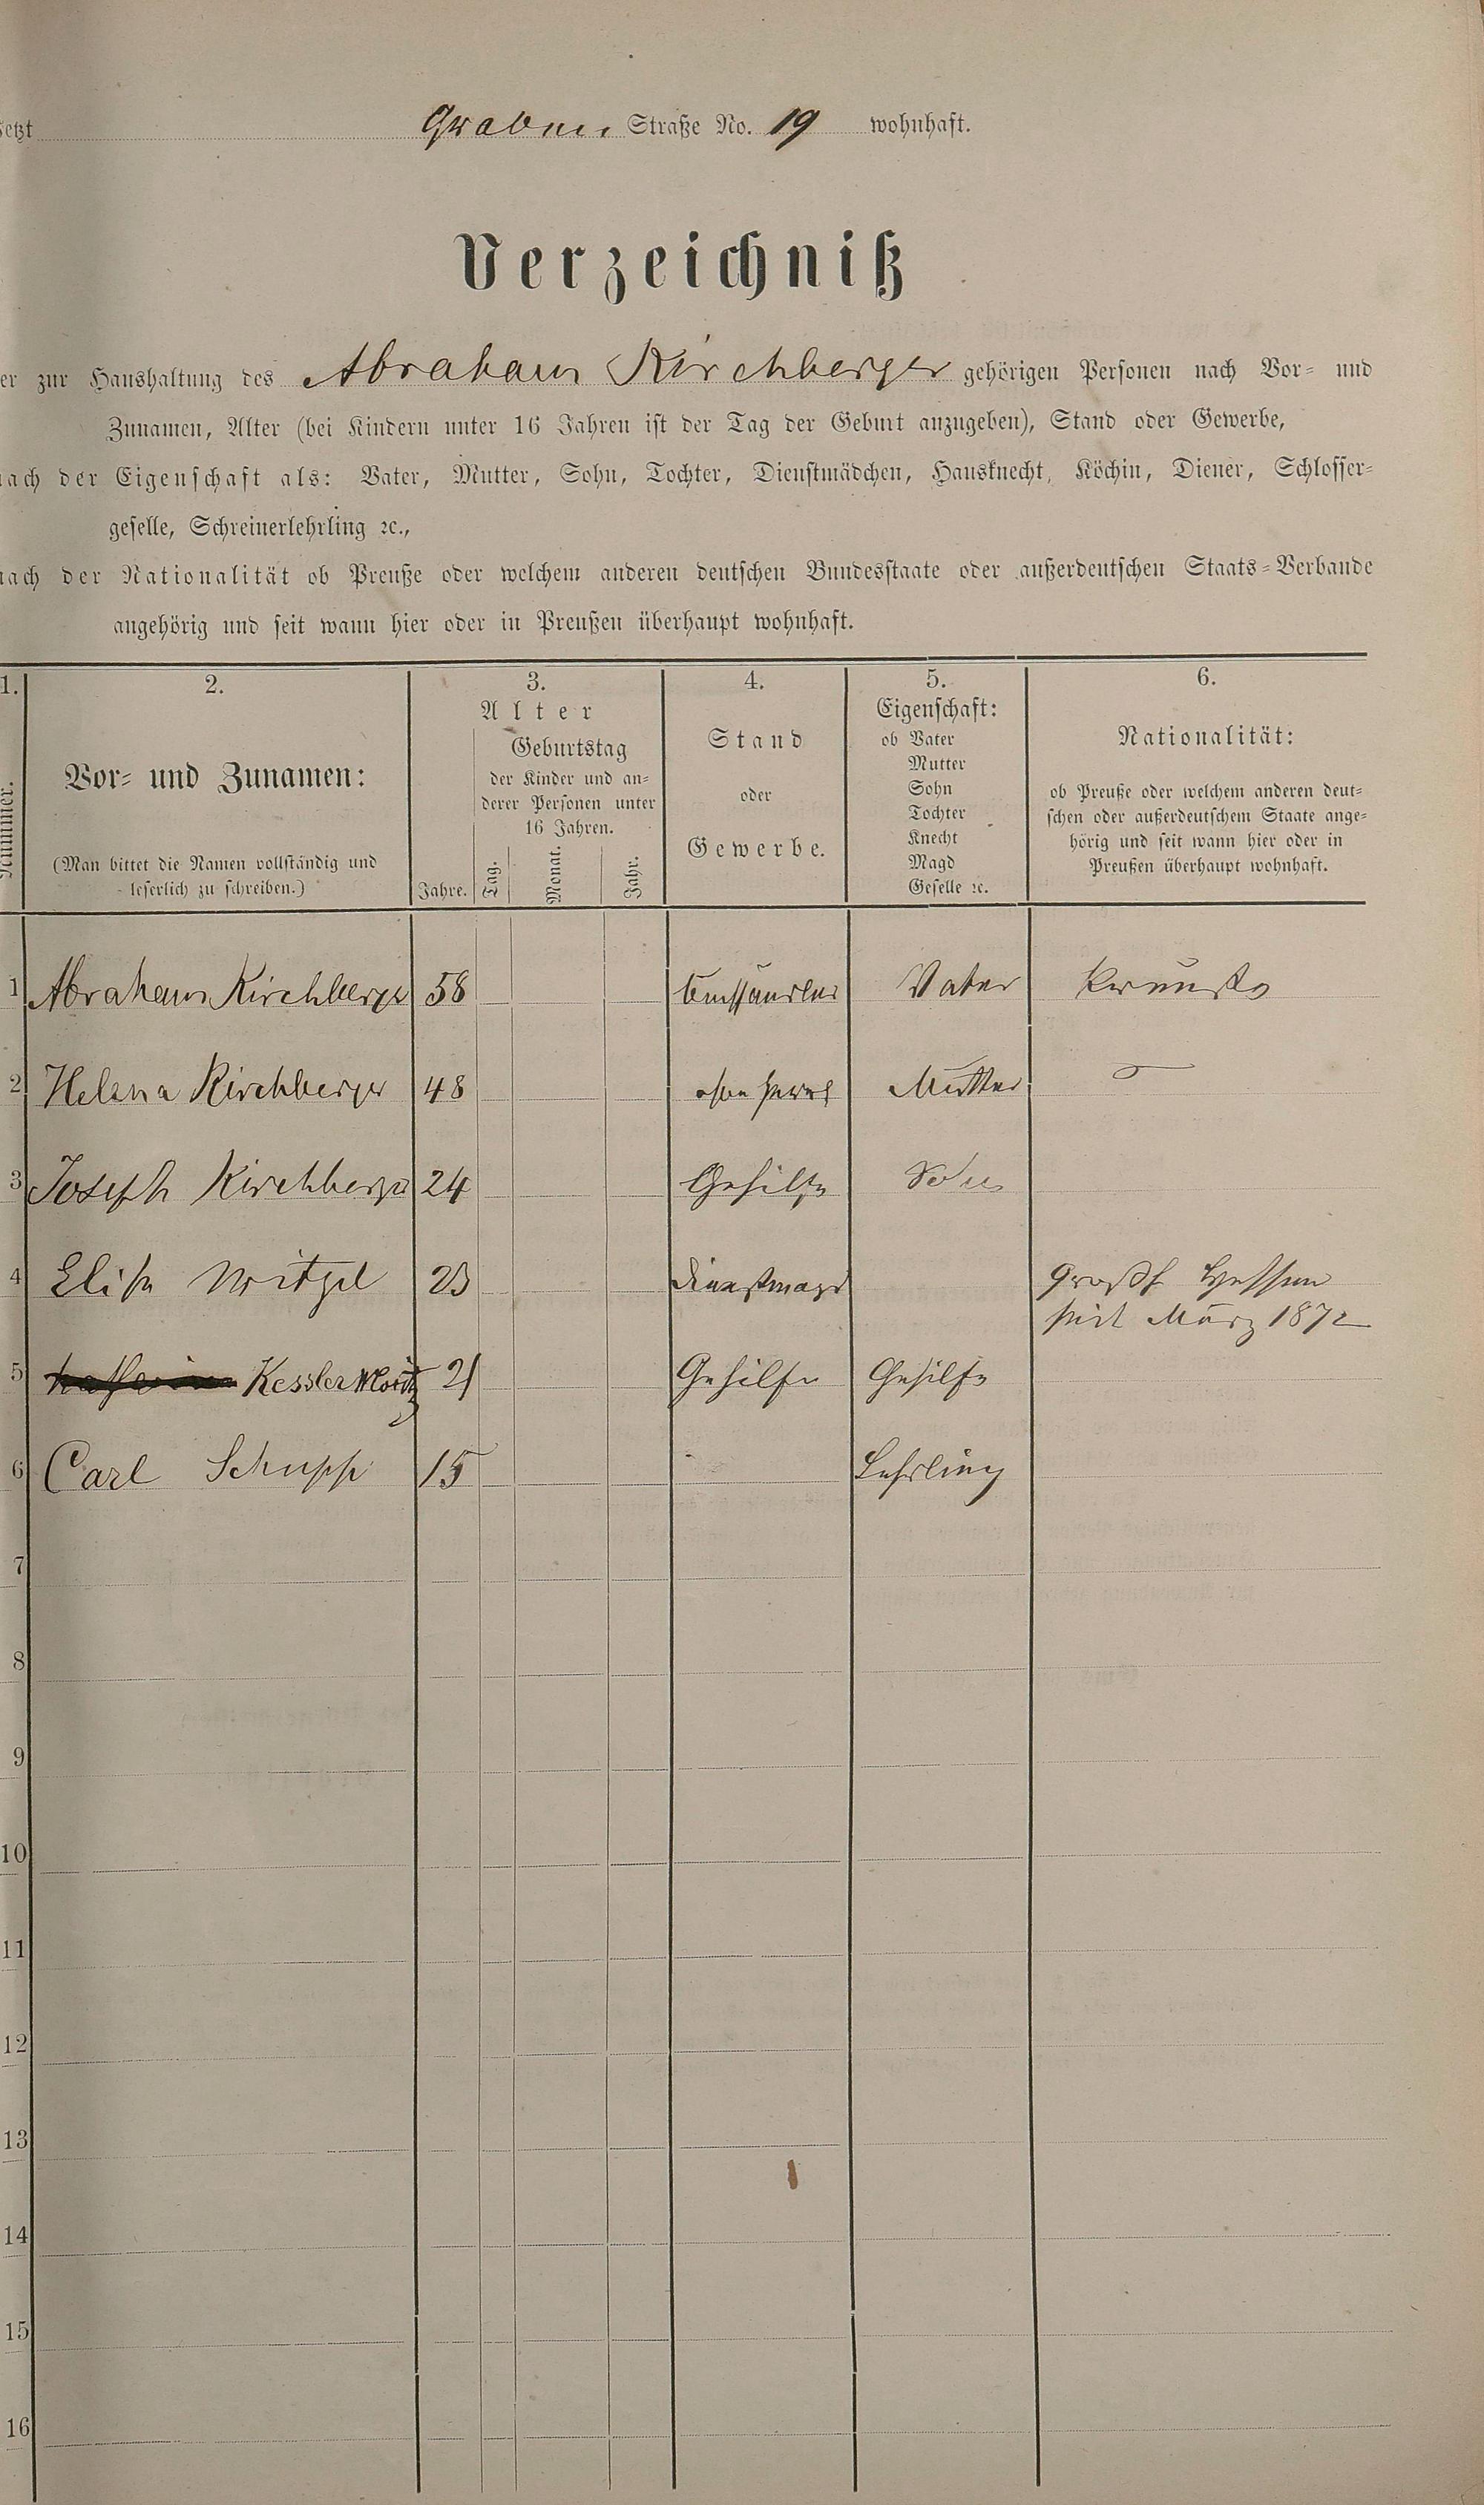 etzt Graben Straße No. 19 wohnhaft.
Verzeichniß
er zur Haushaltung des Abraham Kirchberger gehörigen Personen nach Vor= und
Zunamen, Alter (bei Kindern unter 16 Jahren ist der Tag der Geburt anzugeben), Stand oder Gewerbe,
nach der Eigenschaft als: Vater, Mutter, Sohn, Tochter, Dienstmädchen, Hausknecht, Köchin, Diener, Schlosser=
geselle, Schreinerlehrling ꝛc.,
nach der Nationalität ob Preuße oder welchem anderen deutschen Bundesstaate oder außerdeutschen Staats=Verbande
angehörig und seit wann hier oder in Preußen überhaupt wohnhaft.
1. 2. 3. 4. 5. 6.
Nummer.
Vor= und Zunamen:
(Man bittet die Namen vollständig und
leserlich zu schreiben.)
Alter
Jahre.
Geburtstag
der Kinder und an=
derer Personen unter
16 Jahren.
Tag. Monat. Jahr.
Stand
oder
Gewerbe.
Eigenschaft:
ob Vater
Mutter
Sohn
Tochter
Knecht
Magd
Geselle ꝛc.
Nationalität:
ob Preuße oder welchem anderen deut=
schen oder außerdeutschem Staate ange=
hörig und seit wann hier oder in
Preußen überhaupt wohnhaft.
1 Abraham Kirchberger 58 Vater Preuße
2 Helena Kirchberger 48 Mutter
3 Joseph Kirchberger 24 Gehilfe Sohn
4 Elise Witzel 23 Dienstmagd Großh Hessen
seit März 1872
5 Kessler Moritz 21 Gehilfe Gehilfe
6 Carl Schupp 15 Lehrling
7
8
9
10
11
12
13
14
15
16